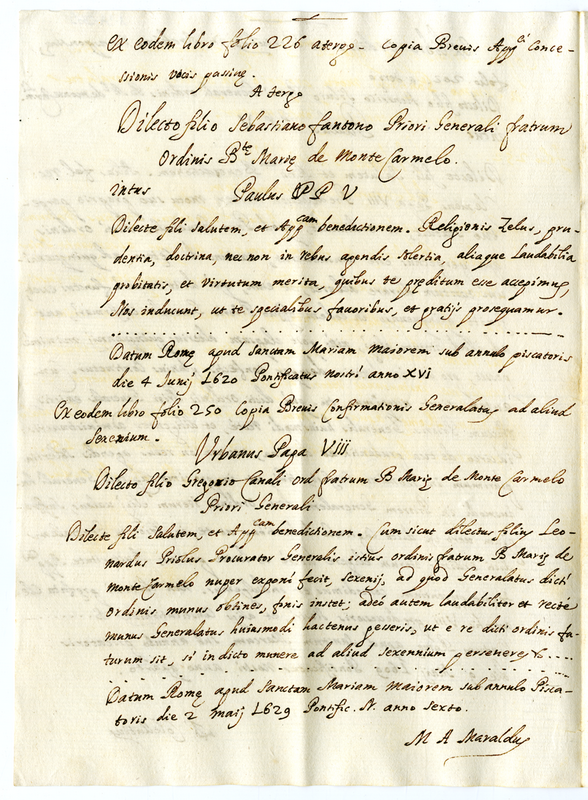 Ex eodem libro folio 226 atergo - Copia Breuis App.ci Conce-
ssionis vocis passiuę.
A tergo
Dilecto filio Sebastiano fantono Priori Generali fratrum
Ordinis B.te Marię de Monte Carmelo.
intus Paulus PP V
Dilecte fili salutem, et App.cam benedictionem. Religionis Zelus, pru-
dentia, doctrina, nec non in rebus agendis solertia, aliaque laudabilia
probitatis, et virtutum merita, quibus te pręditum esse accepimus,
Nos inducunt, ut te specialibus fauoribus, et gratijs prosequamur.
Datum Romę apud Sanctam Mariam maiorem sub annulo piscatoris
die 4 Junij 1620 Pontificatus nostri anno XVI
Ex eodem libro folio 250 Copia Breuis Confirmationis Generalatus ad aliud
sexenium.
Urbanus Papa VIII
Dilecto filio Gregorio Canali ord fratrum B Marię de Monte Carmelo
Priori Generali.
Dilecte fili Salutem, et App.cam benedictionem. Cum sicut dilectus filius Leo-
nardus Priolus Procurator Generalis istius ordinis fratrum B Marię de
Monte Carmelo nuper exponi fecit, sexenij, ad quod Generalatus dicti
ordinis munus obtines, finis instet; adeò autem laudabiliter et recte
munus Generalatus huiusmodi hactenus gesseris, ut e re dicti ordinis fu-
turum sit, si in dicto munere ad aliud sexennium perseueres &.....
Datum Romę apud Sanctam Mariam maiorem sub annulo Pisca-
toris die 2 maij 1629 Pontific. N. anno sexto.
M A Maraldus